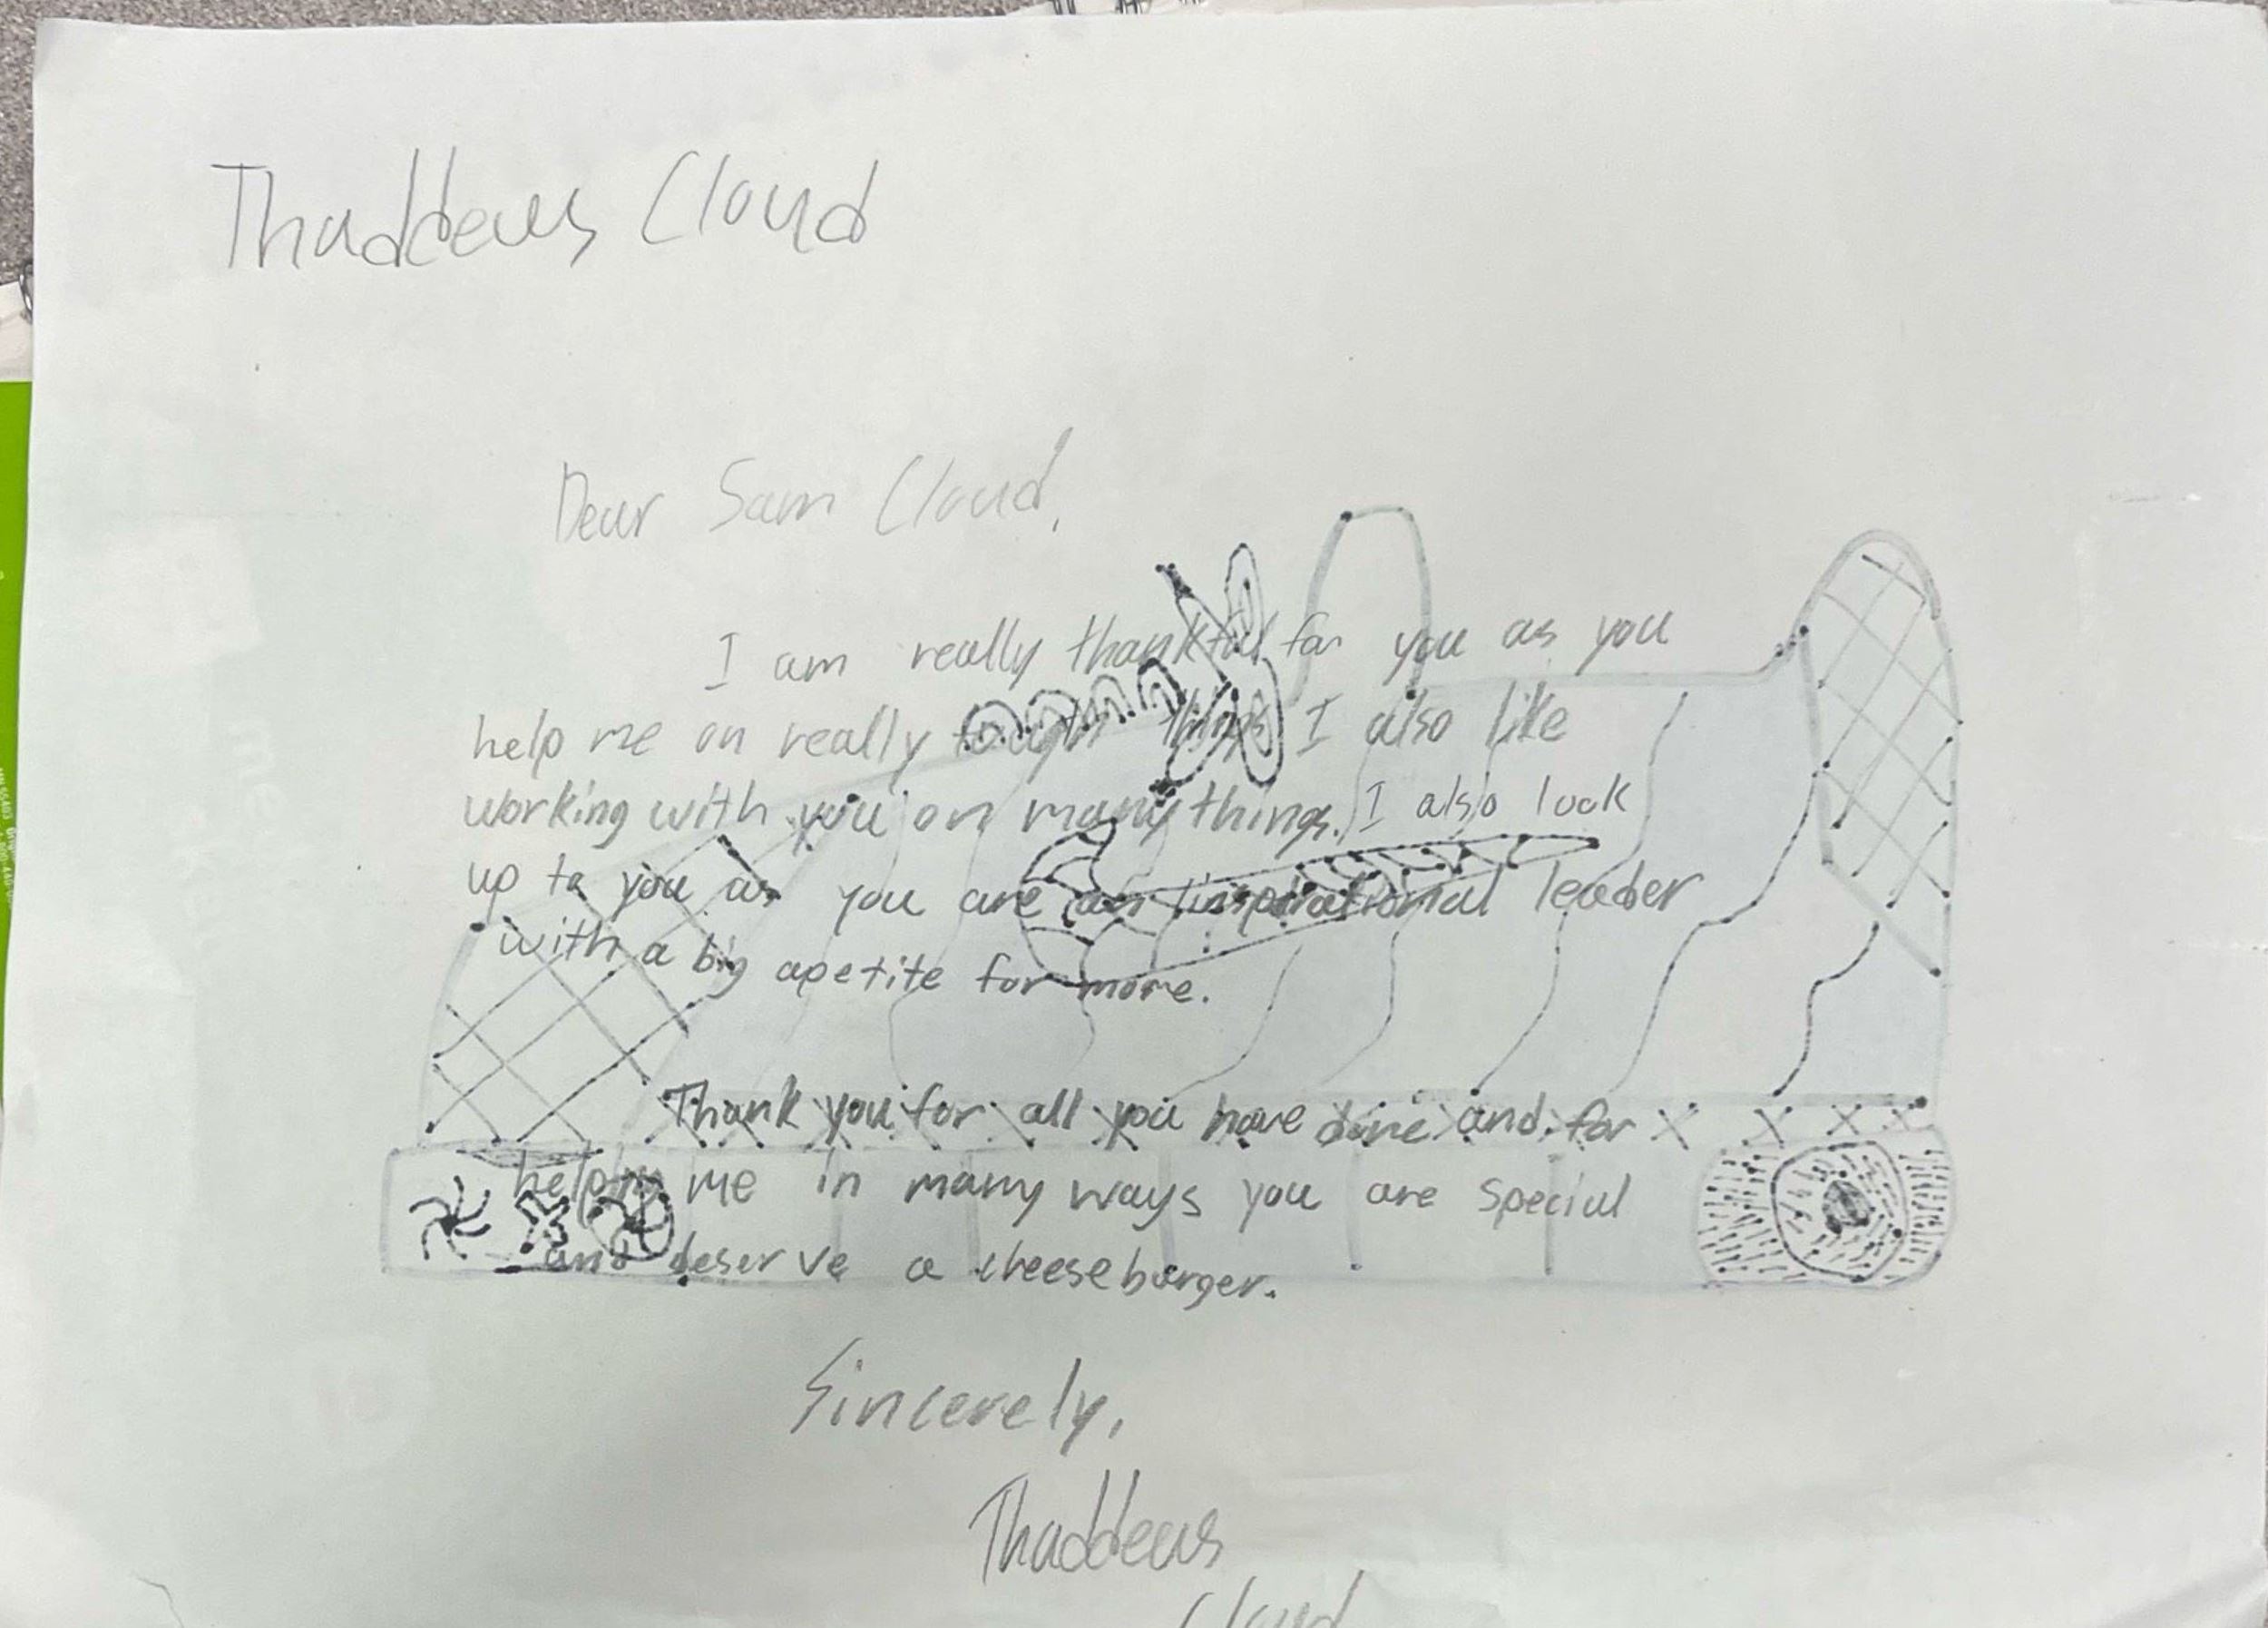 Thaddeus Cloud
Dear Sam Cloud,
I am really thankful for you as you
help me on really tough things I also like
working with you on many things. I also look
up to you as you are an inspirational leader
with a big apetite for more.
Thank you for all you have done and for
helping me in many ways you are special
and deserve a cheeseburger.
Sincerely,
Thaddeus
Cloud